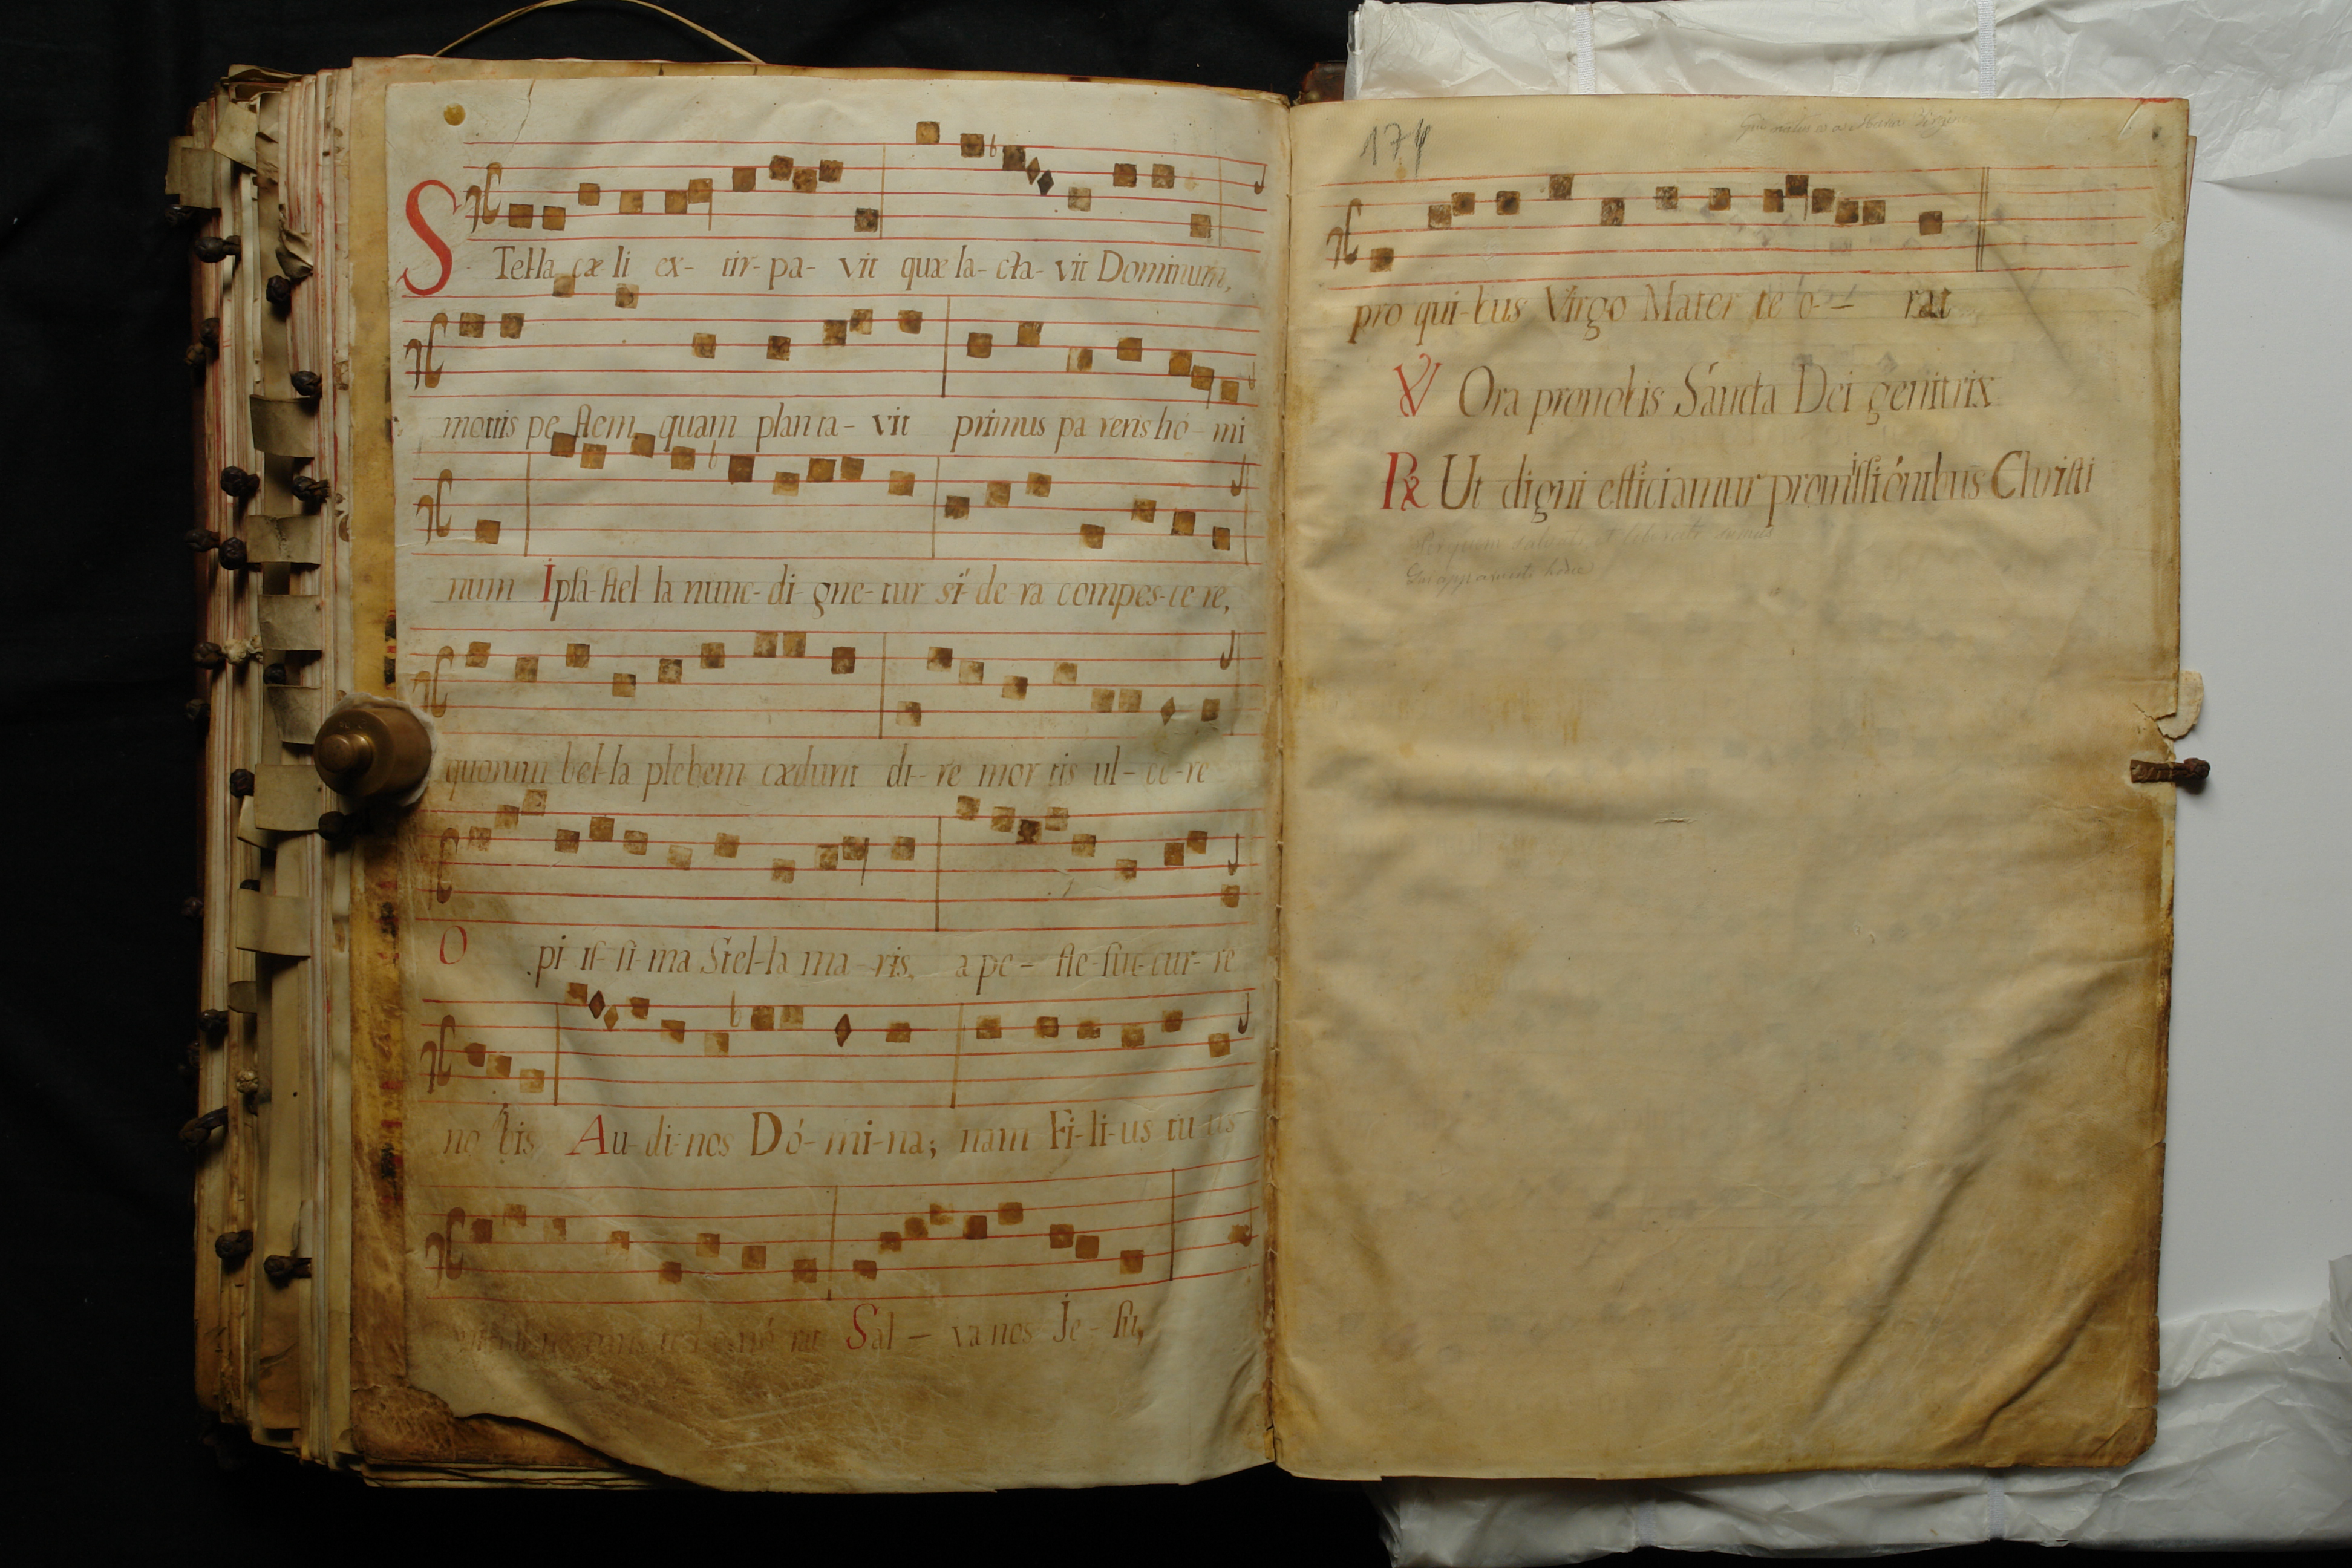 STella cæ li ex- tir- pa- vit quæ la- cta- vit Dominum,
mortis pe stem quam plan ta- vit primus pa rens hó- mi
num Ipsa- stel- la nunc- di- gne- tur sí- de ra compes- ce re,
quorum bel- la plebem cædunt di- re mor tis ul- ce- re
O pi is- si- ma Stel- la ma- ris, a pe- ste- suc- cur- re
no bis Au- di- nos Dó- mi- na; nam Fi- li- us tu us
Sal- va nos Je- su,
174
pro qui- bus Virgo Mater te o- rat
℣ Ora pro nobis Sáncta Dei genitrix
℟ Ut digni efficiamur promissiónibus Christi